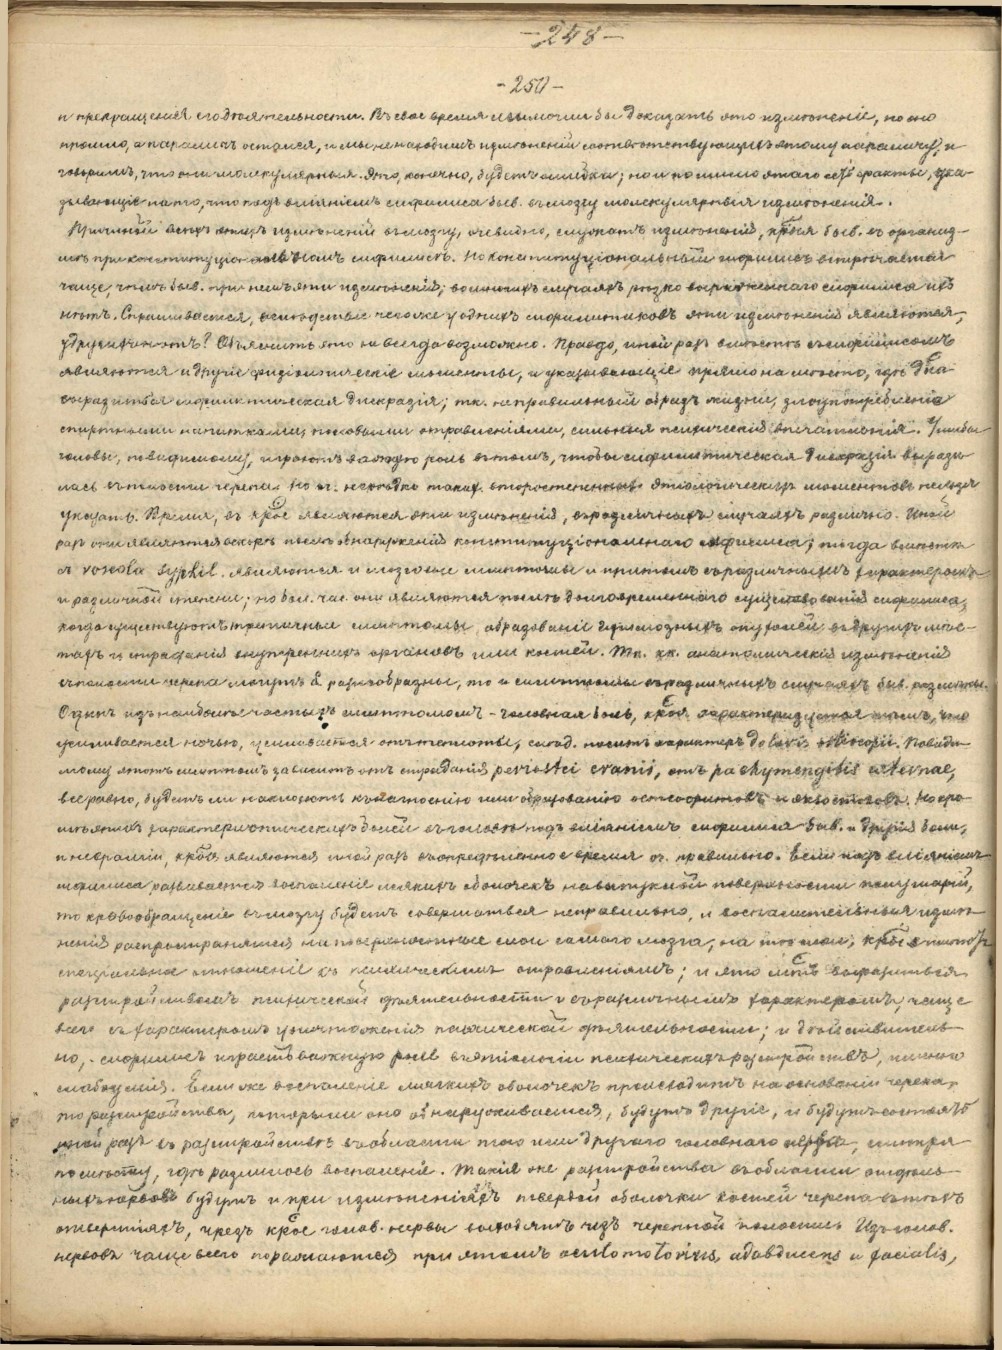 - 248 -
- 250 -
и прекращенiя его дѣятельности. Въ свое время и мы могли бы доказать это измѣненiе, но оно
прошло, а параличъ остался, и мы не находимъ измѣненiй соотвѣтствующихъ этому параличу, и
говоримъ, что они молекулярныя. Это, конечно, будетъ ошибка; но и помимо этаго есть факты, ука-
зывающiе на то, что подъ влiянiемъ сифилиса быв. въ мозгу молекулярныя измѣненiя.
Причиной всѣхъ этихъ измѣненiй въ мозгу, очевидно, служатъ измѣненiя, кбыя быв. въ организ-
мѣ при конституцiональномъ сифилисѣ. Но конституцiональный сифилисъ встрѣчается
чаще, чѣмъ быв. при немъ эти измѣненiя; во многихъ случаяхъ рѣзко выраженнаго сифилиса ихъ
нѣтъ. Спрашивается, вслѣдствiе чего же у однихъ сифилитиковъ эти измѣненiя являются,
у другихъ нѣтъ? Объяснить это не всегда возможно. Правда, иной разъ вмѣстѣ съ сифилисомъ
являются и другiе этiологическiе моменты, и указывающiе прямо на мѣсто, гдѣ дна
выразиться сифилитическая дискразiя; тк. неправильный образъ жизни, злоупотребленiе
спиртными напитками, половыми отправленiями, сильныя психическiя впечатлѣнiя. Ушибы
головы, повидимому, играютъ важную роль въ томъ, чтобы сифилитическая дискразiя вырази-
лась въ полости черепа. Но оч. нерѣдко такихъ второстепенныхъ этiологическихъ моментовъ нельзя
указать. Время, въ кбое являются эти измѣненiя, въ различныхъ случаяхъ различно. Иной
разъ они являются вскорѣ послѣ обнаруженiя конституцiональнаго сифилиса; тогда вмѣстѣ
съ roseola syphil. являются и мозговые симптомы и притомъ съ различнымъ характеромъ
и различной степени; но бол. час. они являются послѣ долговременнаго существованiя сифилиса,
когда существуютъ третичные симптомы, образованiе гуммозныхъ опухолей въ другихъ мѣс-
тахъ и страданiя внутреннихъ органовъ или костей. Тк. кк. анатомическiя измѣненiя
въ полости черепа могутъ б. разнообразны, то и симптомы въ различныхъ случаяхъ быв. различны.
Однимъ изъ наиболѣе частыхъ симптомомъ - головная боль, кбая характеризуется тѣмъ, что
усиливается ночью, усиливается отъ теплоты, слѣд. носитъ характеръ doloris osteocopii. Повиди-
мому этотъ симптомъ зависитъ отъ страданiя periostei cranii, отъ pachymengitis externae,
все равно, будетъ ли наклонность къ нагноенiю или образованiю остеофитовъ и экзостозовъ. Но кро-
мѣ этихъ характеристическихъ болей въ головѣ подъ влiянiемъ сифилиса быв. и другiя боли,
и невралгiи, кбыя являются иной разъ въ опредѣленное время оч. правильно. Если подъ влiянiемъ
сифилиса развивается воспаленiе мягкихъ оболочекъ на выпуклой поверхности полушарiй,
то кровообращенiе въ мозгу будетъ совершаться неправильно, и воспалительныя измѣ-
ненiя распространятся на поверхностные слои самаго мозга, на тѣ слои, кбые имѣютъ
спецiальное отношенiе къ психическимъ отправленiямъ; и это мбтъ выразиться
разстройствомъ психической дѣятельности съ различнымъ характеромъ, чаще
всего съ характеромъ уничтоженiя психической дѣятельности; и дѣйствитель-
но, сифилисъ играетъ важную роль въ этiологiи психическихъ разстройствъ, именно
слабоумiя. Если же воспаленiе мягкихъ оболочекъ происходитъ на основанiи черепа,
то разстройства, которыми оно обнаруживается, будутъ другiе, и будутъ состоять
иной разъ въ разстройствѣ въ области того или другого головнаго нерва, смотря
по мѣсту, гдѣ развилось воспаленiе. Такiя же разстройства въ области отдѣль-
ныхъ нервовъ будутъ и при измѣненiяхъ твердой оболочки костей черепа въ тѣхъ
отверстiяхъ, чрезъ кбые голов. нервы выходятъ изъ черепной полости. Изъ голов.
нервовъ чаще всего поражаются при этомъ oculomotorius, abducens и facialis,